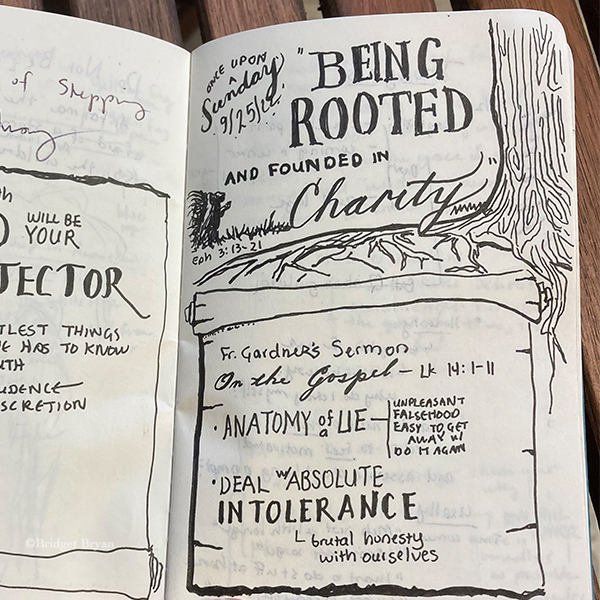 of Stepping
Away
WILL BE
YOUR
TECTOR
TLEST THINGS
E HAS TO KNOW
TH
UDENCE
SCRETION
©Bridget Bryan
ONCE UPON
A
Sunday
9/25/22
"BEING
ROOTED
AND FOUNDED IN
Charity"
eph 3:13-21
Fr. Gardner's Sermon
On the Gospel - Lk 14:1-11
• ANATOMY of a LIE
UNPLEASANT
FALSEHOOD
EASY TO GET
AWAY W/
DO IT AGAIN
• DEAL w/ ABSOLUTE
INTOLERANCE
brutal honesty
with ourselves